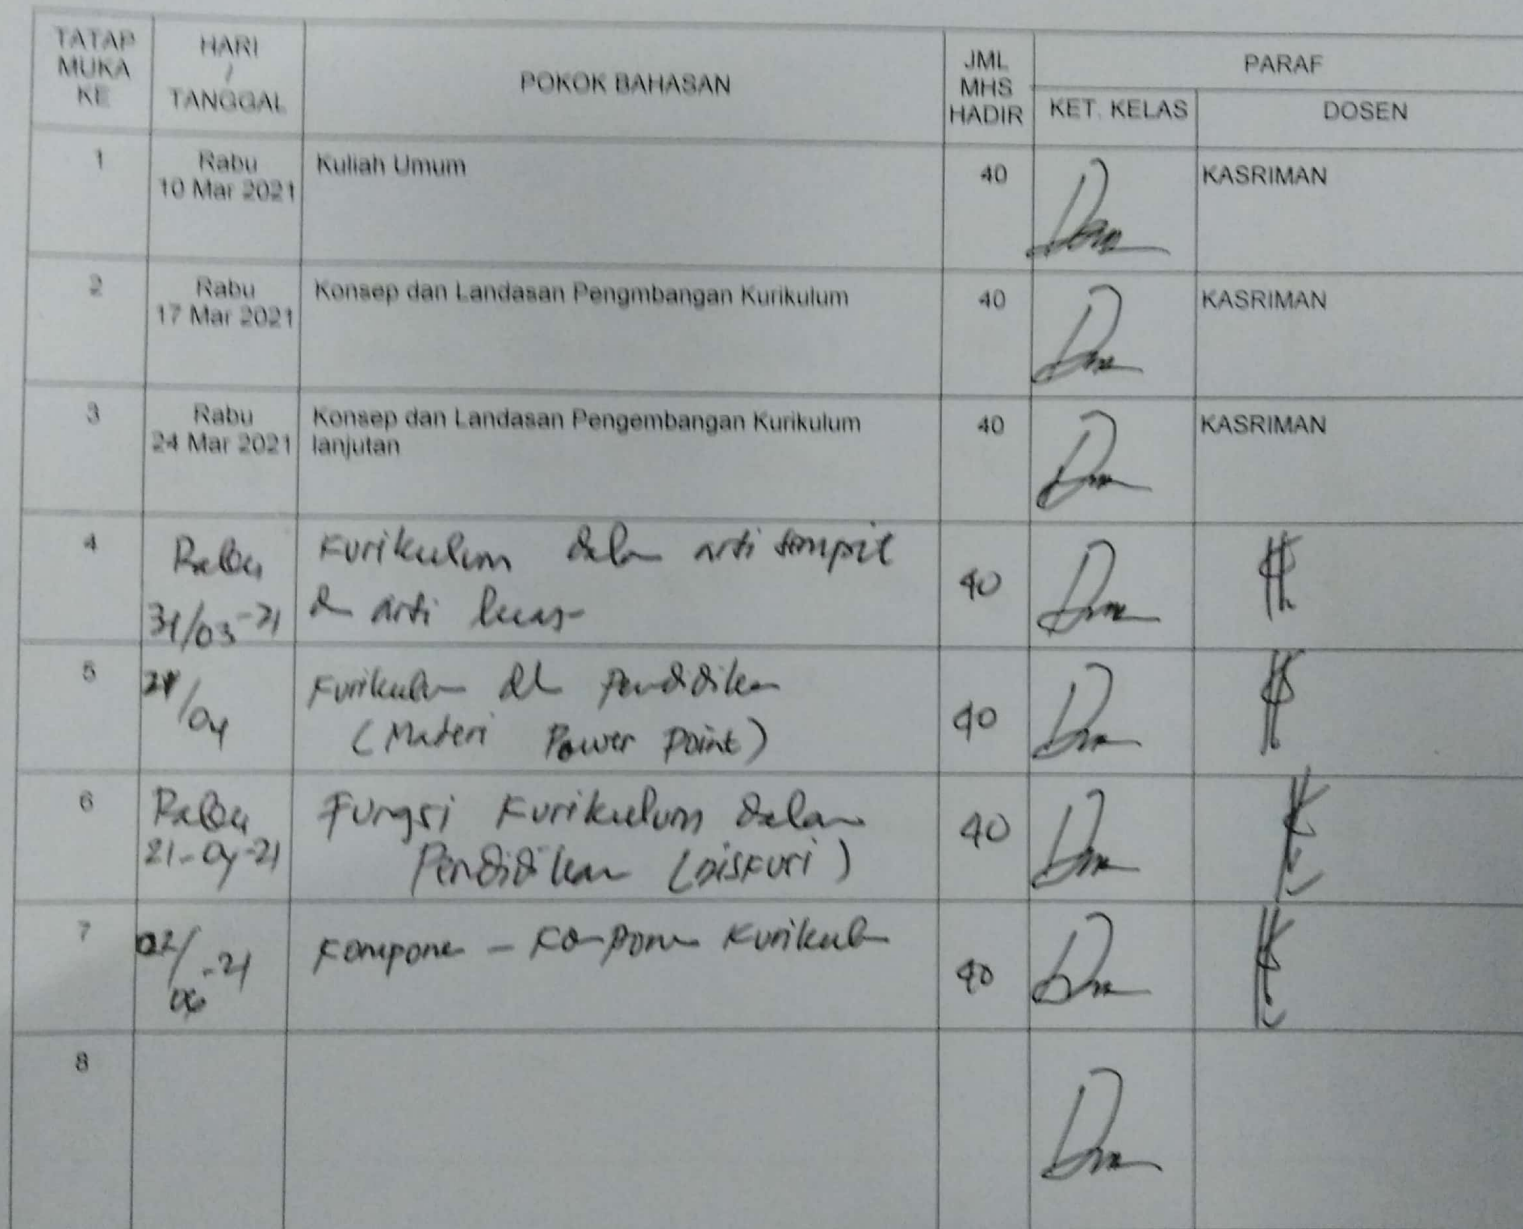 TATAP MUKA KE
HARI / TANGGAL
POKOK BAHASAN
JML MHS HADIR
PARAF
KET. KELAS
DOSEN
1
Rabu
10 Mar 2021
Kuliah Umum
40
KASRIMAN
2
Rabu
17 Mar 2021
Konsep dan Landasan Pengmbangan Kurikulum
40
KASRIMAN
3
Rabu
24 Mar 2021
Konsep dan Landasan Pengembangan Kurikulum
lanjutan
40
KASRIMAN
4
Rabu
31/03-21
Kurikulum dalam arti sempit
& arti luas
40
5
/04
Kurikulum dlm pendidikan
(Materi Power Point)
40
6
Rabu
21-04-21
Fungsi Kurikulum dalam
Pendidikan (Diskusi)
40
7
02/06-21
Komponen - Komponen Kurikulum
40
8